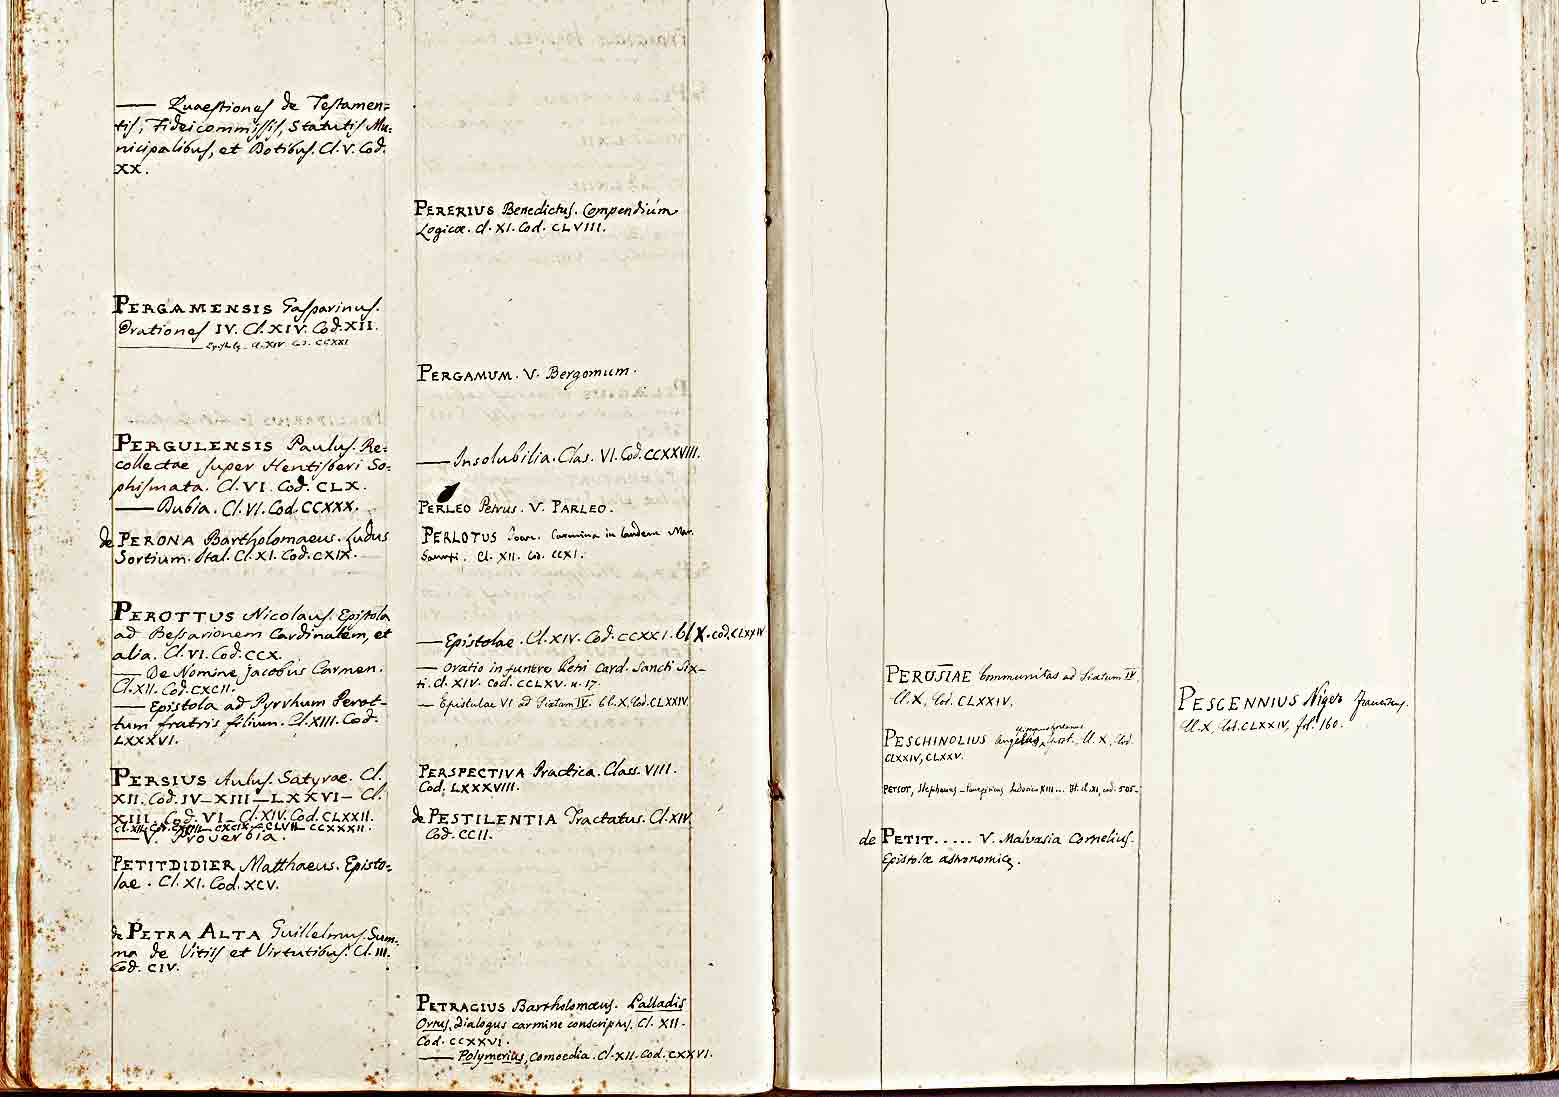 —— Quaestiones de Testamen=
tis, Fideicommissis, Statutis Mu=
nicipalibus, et Dotibus. Cl. V. Cod.
XX.
PERGAMENSIS Gasparinus.
Orationes IV. Cl. XIV. Cod. XII.
—— Epistolę. Cl. XIV. Cod. CCXXI
PERGULENSIS Paulus. Re=
collectae super Hentisberi So=
phismata. Cl. VI. Cod. CLX.
—— Dubia. Cl. VI. Cod. CCXXX.
de PERONA Bartholomaeus. Ludus
Sortium. Ital. Cl. XI. Cod. CXIX.
PEROTTUS Nicolaus. Epistola
ad Bessarionem Cardinalem, et
alia. Cl. VI. Cod. CCX.
—— De Nomine Jacobus Carmen.
Cl. XII. Cod. CXCII.
—— Epistola ad Pyrrhum Perot-
tum fratris filium. Cl. XIII. Cod.
LXXXVI.
PERSIUS Aulus. Satyrae. Cl.
XII. Cod. IV—XIII—LXXVI— Cl.
XIII. Cod. VI— Cl. XIV. Cod. CLXXII.
Cl. XII. Cod. CXCIX—CLVII—CCXXXII.
—— V. Proverbia.
PETITDIDIER Matthaeus. Episto=
lae. Cl. XI. Cod. XCV.
de PETRA ALTA Guillelmus. Sum=
ma de Vitiis et Virtutibus. Cl. III.
Cod. CIV.
PERERIUS Benedictus. Compendium
Logicæ. Cl. XI. Cod. CLVIII.
PERGAMUM. V. Bergomum.
—— Insolubilia. Clas. VI. Cod. CCXXVIII.
PERLEO Petrus. V. PARLEO.
PERLOTUS Joan. Carmina in laudem Mar.
Sanuti. Cl. XII. Cod. CCXI.
—— Epistolae. Cl. XIV. Cod. CCXXI. Cl X. Cod. CLXXIV
—— Oratio in funere Petri Card. Sancti Six-
ti. Cl. XIV. Cod. CCLXV. n. 17.
— Epistulae VI ad Sixtum IV. Cl. X. Cod. CLXXIV.
PERSPECTIVA Practica. Class. VIII.
Cod. LXXXVIII.
de PESTILENTIA Tractatus. Cl. XIV.
Cod. CCII.
PETRACIUS Bartholomæus. Palladis
Ortus, dialogus carmine conscriptus. Cl. XII.
Cod. CCXXVI.
—— Polymerius, comoedia. Cl. XII. Cod. CXXVI.
PERUSIAE Communitas ad Sixtum IV.
Cl. X, Cod. CLXXIV.
PESCHINOLIUS Angelus, Cl. X, Cod.
CLXXIV, CLXXV.
PETSOT, Stephanus — Panegiricus Ludovico XIII... Cl. XI, cod. 505-
de PETIT..... V. Malvasia Cornelius.
Epistolæ astronomicę.
PESCENNIUS Niger
Cl. X, Cod. CLXXIV, fol. 160.